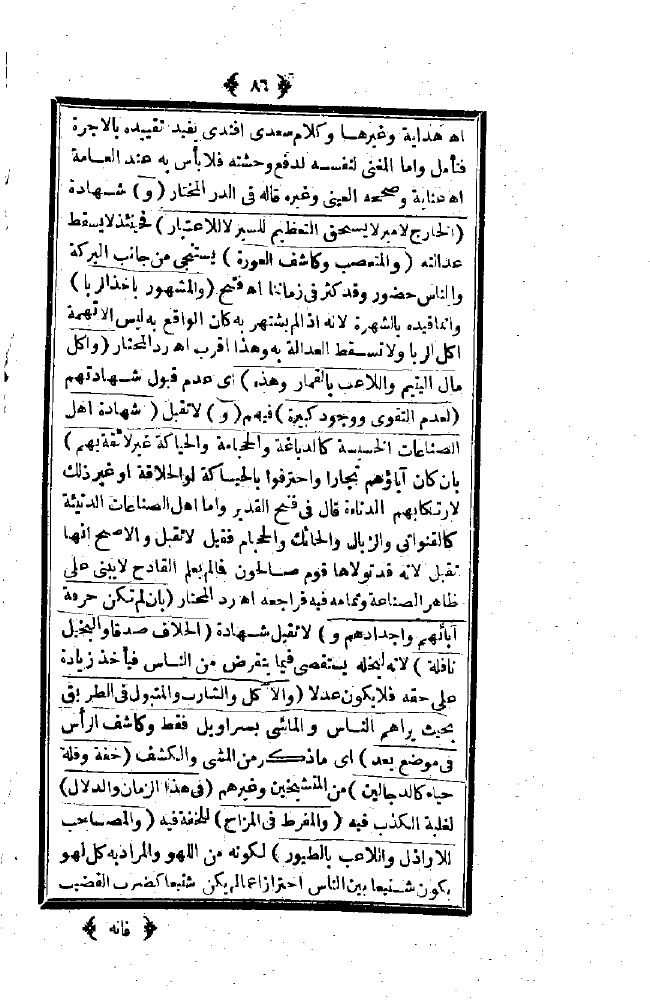 ﴿ ٨٦ ﴾
اه هداية وغيرها وكلام سعدى افندى يفيد تقييده بالاجرة
فتأمل واما المغنى لنفسه لدفع وحشته فلا بأس به عند العامة
اه عناية وصححه العينى وغيره قاله فى الدر المختار (و) شهادة
(الخارج لامير لا يستحق التعظيم للسير لا للاعتبار) فحينئذ لا يسقط
عدالته (والمتعصب وكاشف العورة) يستنجى من جانب البركة
والناس حضور وقد كثر فى زماننا اه فتح (والمشهور باخذ الربا)
وانما قيده بالشهرة لانه اذا لم يشتهر به كان الواقع به ليس الا تهمة
اكل الربا ولا تسقط العدالة به وهذا اقرب اه رد المحتار (واكل
مال اليتيم واللاعب بالقمار وهذه) اى عدم قبول شهادتهم
(لعدم التقوى ووجود كبيرة) فيهم (و) لا تقبل (شهادة اهل
الصناعات الخسيسة كالدباغة والحجامة والحياكة غير لائقة بهم)
بان كان آباؤهم تجارا واحترفوا بالحياكة او الحلاقة او غير ذلك
لارتكابهم الدناءة قال فى فتح القدير واما اهل الصناعات الدنيئة
كالقنواتى والزبال والحائك والحجام فقيل لا تقبل والاصح انها
تقبل لانه قد تولاها قوم صالحون فما لم يعلم القادح لا يبنى على
ظاهر الصناعة وتمامه فيه فراجعه اه رد المحتار (بان لم تكن حرفة
آبائهم واجدادهم و) لا تقبل شهادة (الحلاف صدقا والبخيل
نافلة) لانه لبخله يستقصى فيما يتقرض من الناس فيأخذ زيادة
على حقه فلا يكون عدلا (والآكل والشارب والمتبول فى الطريق
بحيث يراهم الناس والماشى بسراويل فقط وكاشف الرأس
فى موضع بعد) اى ما ذكر من المشى والكشف (خفة وقلة
حياء كالدجالين) من المتشيخين وغيرهم (فى هذا الزمان والدلال)
لغلبة الكذب فيه (والمفرط فى المزاح) للخفة فيه (والمصاحب
للاراذل واللاعب بالطيور) لكونه من اللهو والمراد به كل لهو
يكون شنيعا بين الناس احترازا عما لم يكن شنيعا كضرب القضيب
﴿ فانه ﴾